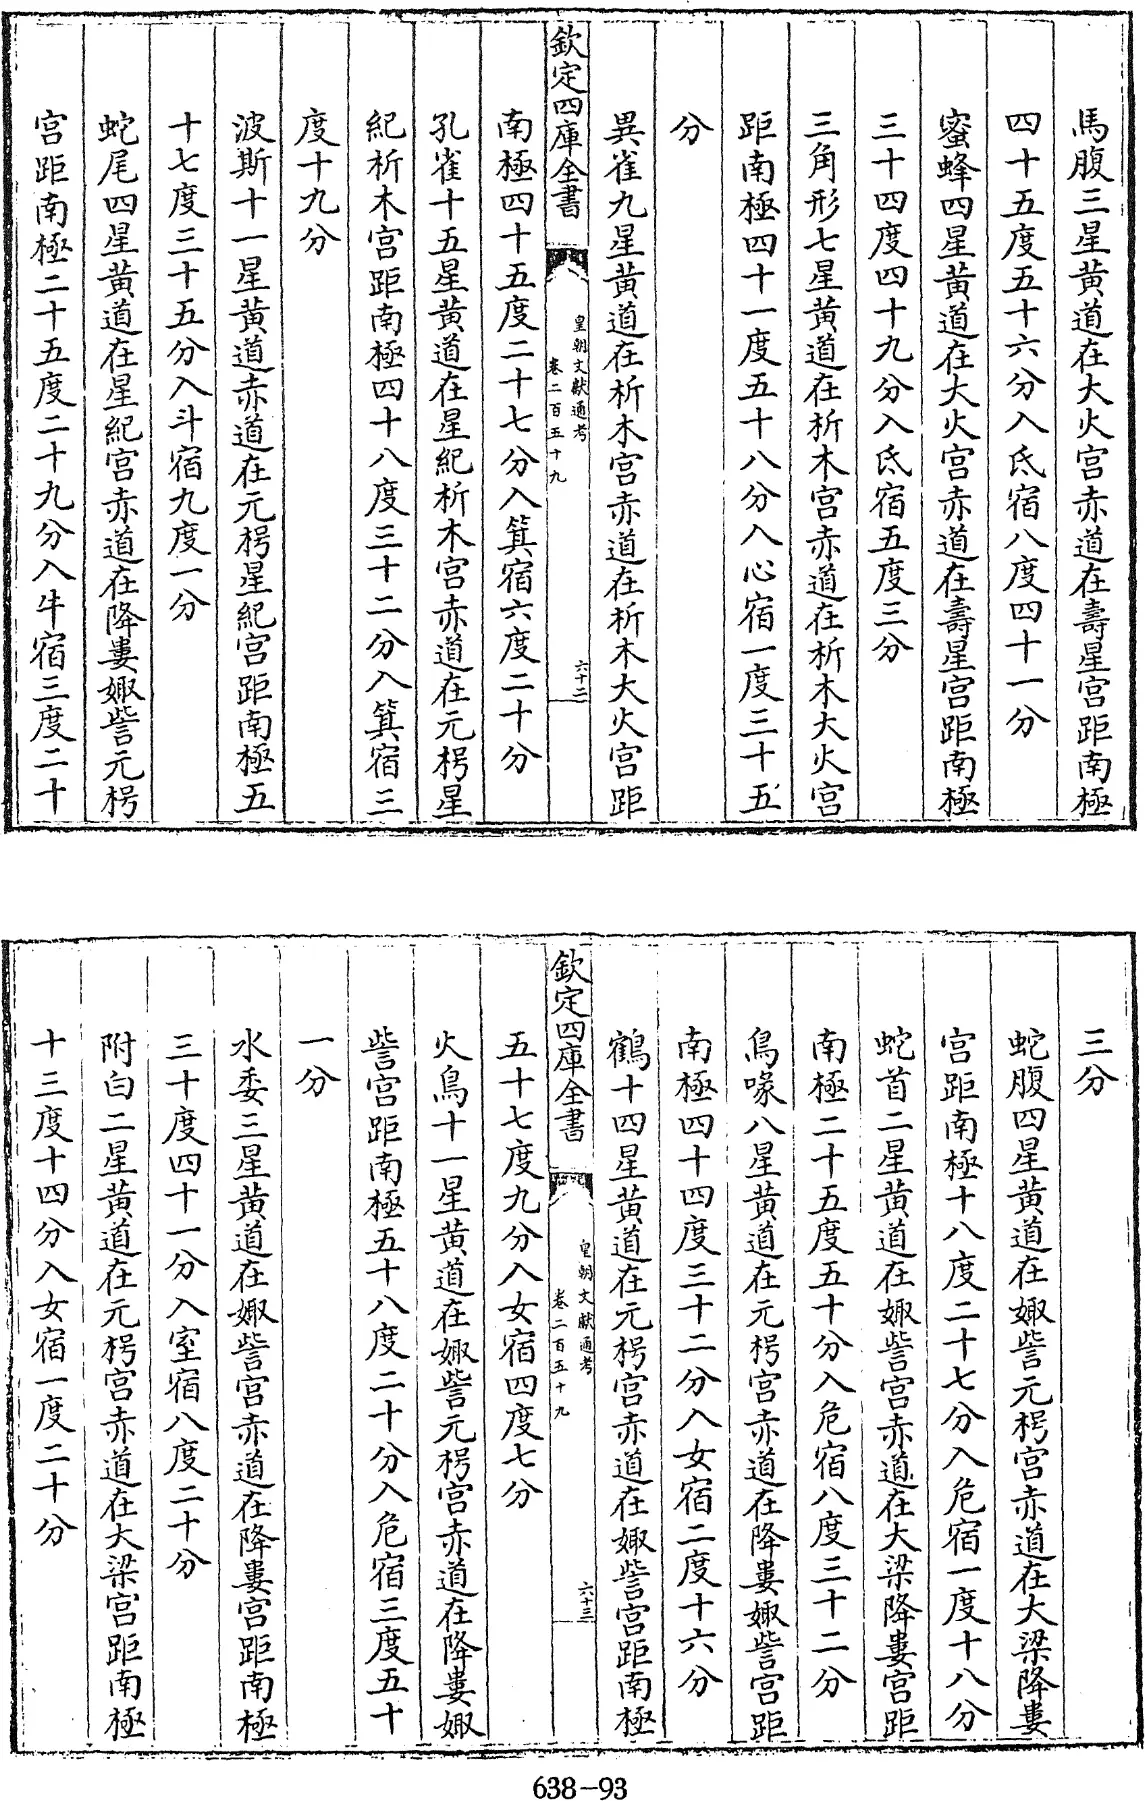 馬腹三星黄道在大火宫赤道在壽星宫距南極
四十五度五十六分入氐宿八度四十一分
蜜蜂四星黄道在大火宫赤道在壽星宫距南極
三十四度四十九分入氐宿五度三分
三角形七星黄道在析木宫赤道在析木大火宫
距南極四十一度五十八分入心宿一度三十五
分
異雀九星黄道在析木宫赤道在析木大火宫距
欽定四庫全書
皇朝文獻通考
卷二百五十九
六十二
南極四十五度二十七分入箕宿六度二十分
孔雀十五星黄道在星紀析木宫赤道在元枵星
紀析木宫距南極四十八度三十二分入箕宿三
度十九分
波斯十一星黄道赤道在元枵星紀宫距南極五
十七度三十五分入斗宿九度一分
蛇尾四星黄道在星紀宫赤道在降婁娵訾元枵
宫距南極二十五度二十九分入牛宿三度二十
三分
蛇腹四星黄道在娵訾元枵宫赤道在大梁降婁
宫距南極十八度二十七分入危宿一度十八分
蛇首二星黄道在娵訾宫赤道在大梁降婁宫距
南極二十五度五十分入危宿八度三十二分
鳥喙八星黄道在元枵宫赤道在降婁娵訾宫距
南極四十四度三十二分入女宿二度十六分
鶴十四星黄道在元枵宫赤道在娵訾宫距南極
欽定四庫全書
皇朝文獻通考
卷二百五十九
六十三
五十七度九分入女宿四度七分
火鳥十一星黄道在娵訾元枵宫赤道在降婁娵
訾宫距南極五十八度二十分入危宿三度五十
一分
水委三星黄道在娵訾宫赤道在降婁宫距南極
三十度四十一分入室宿八度二十分
附白二星黄道在元枵宫赤道在大梁宫距南極
十三度十四分入女宿一度二十分
638-93